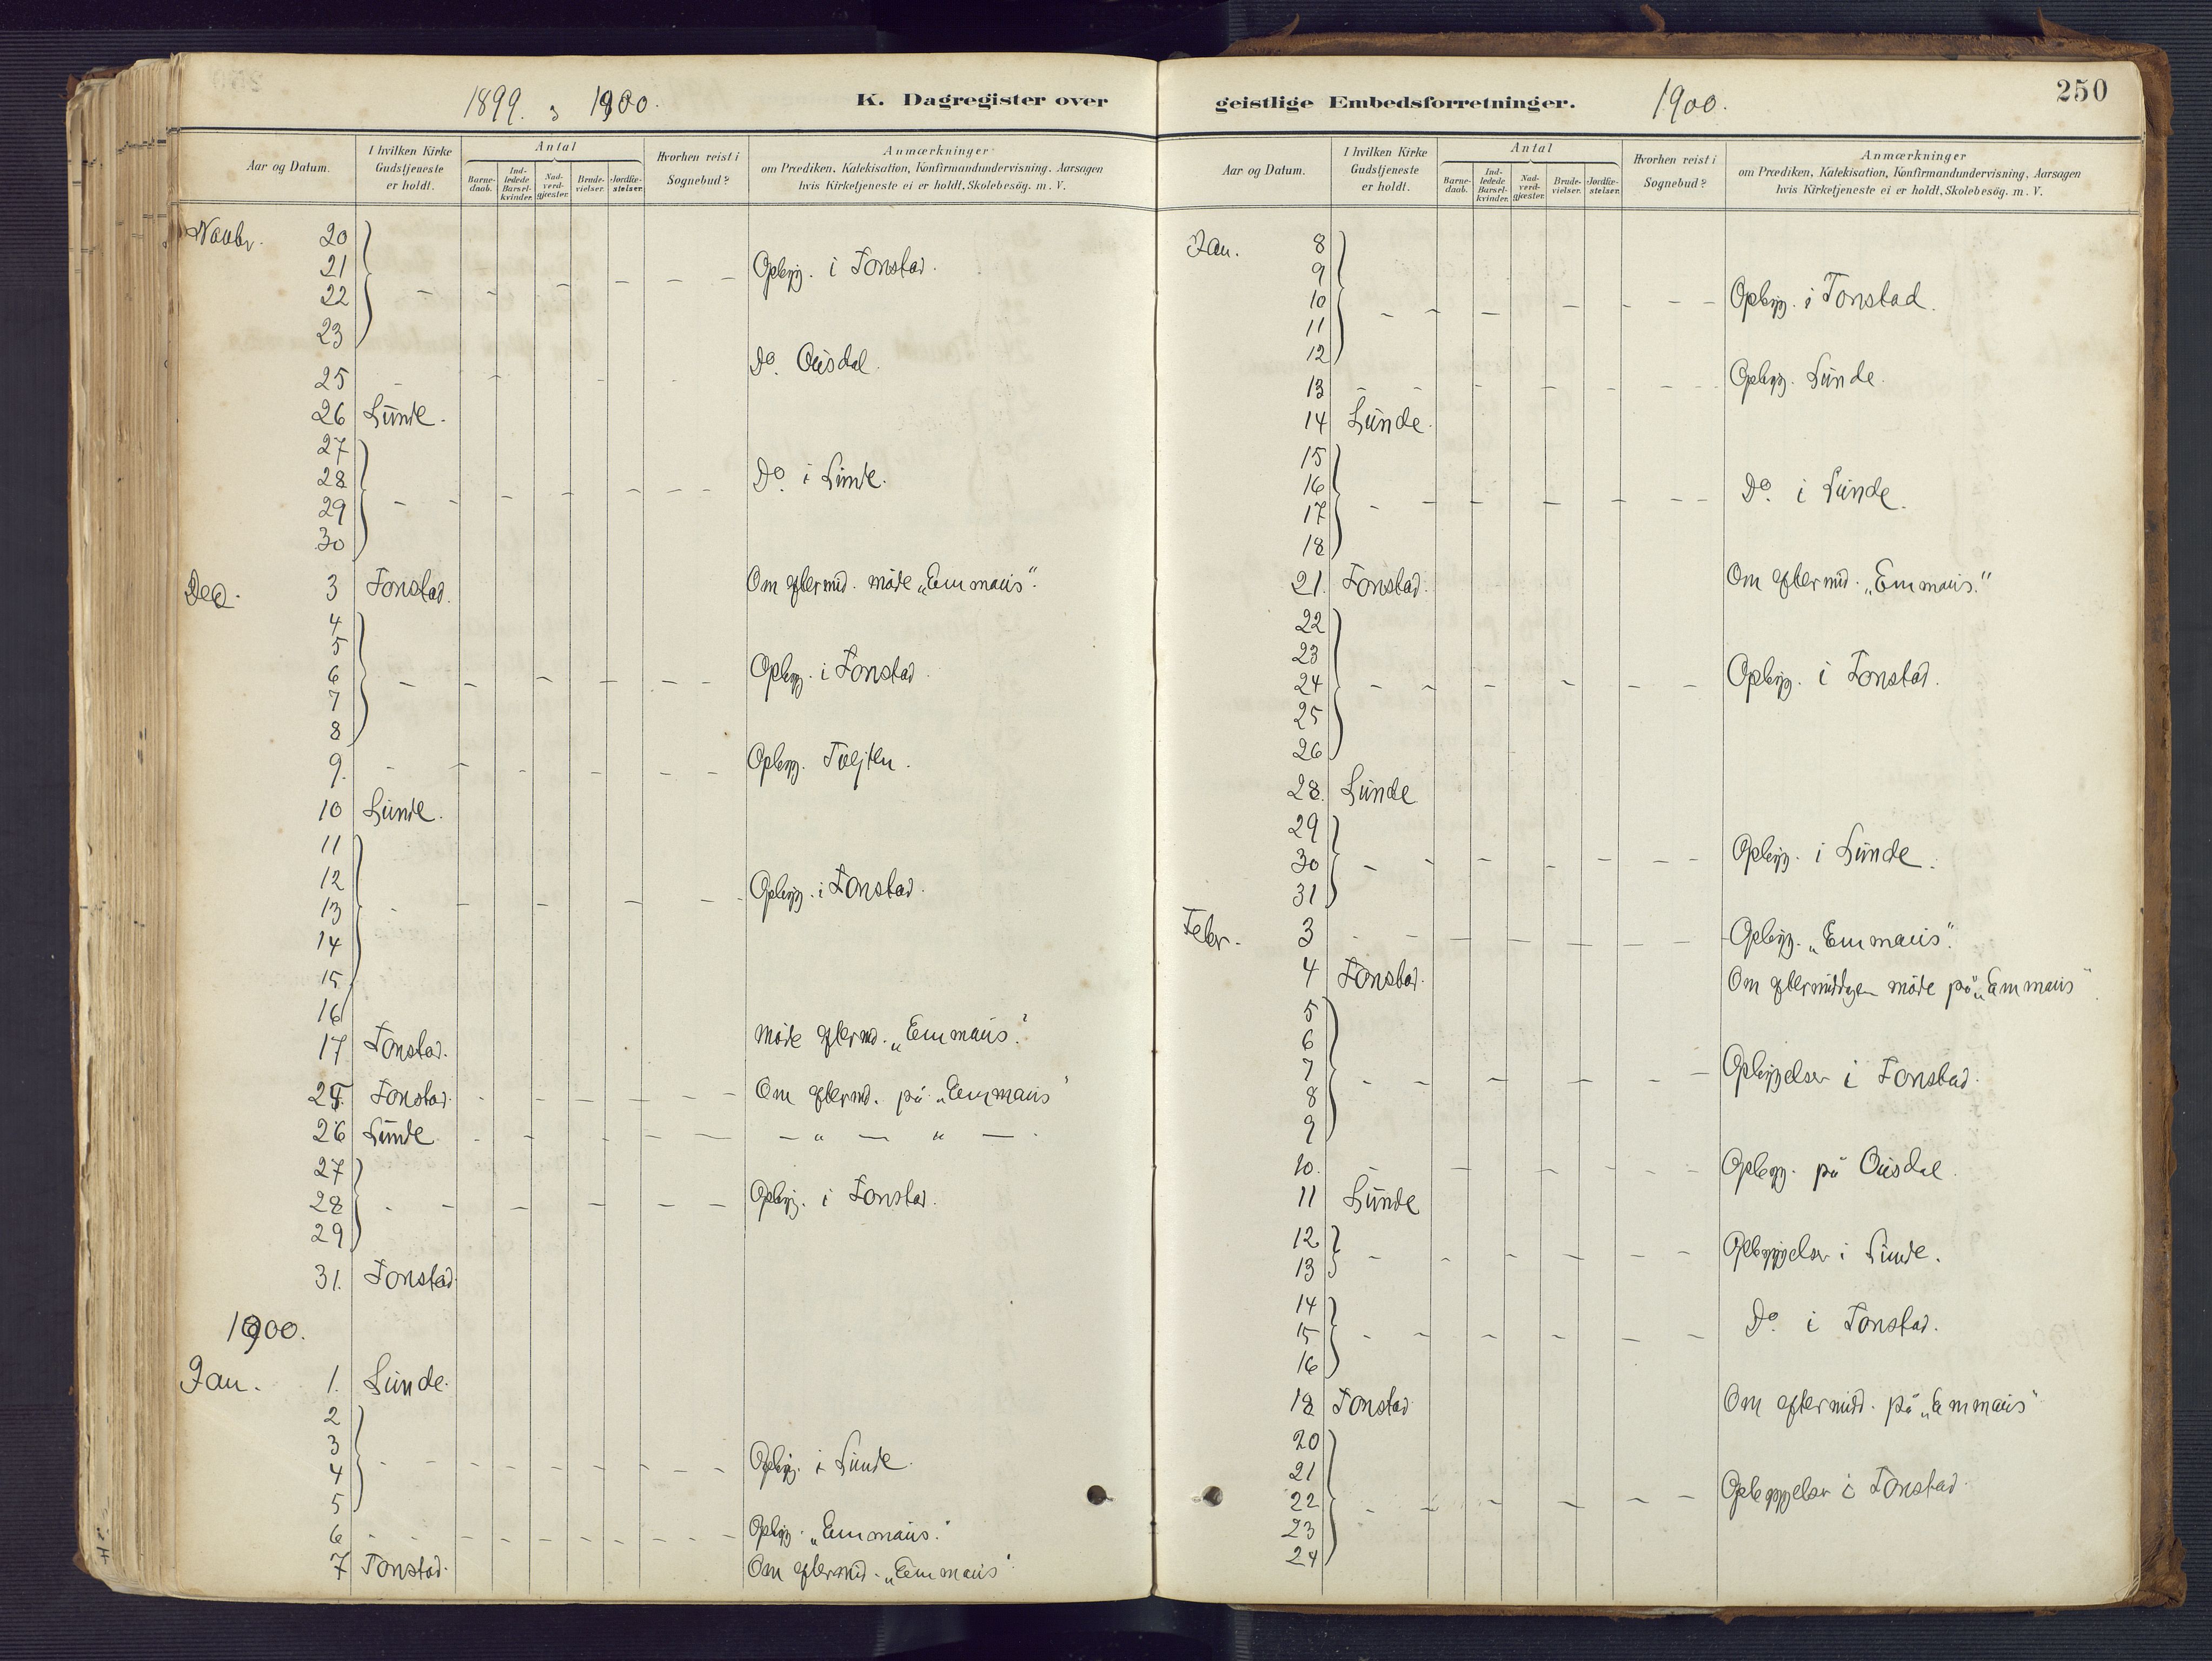 1899. & 1900.
K. Dagregister over
Aar og Datum.
I hvilken Kirke Gudstjeneste er holdt.
Antal
Barnedaab.
Indledede Barselkvinder.
Nadverdgjæster.
Brudevielser.
Jordfæstelser.
Hvorhen reist i Sognebud?
Anmærkninger
om Prædiken, Katekisation, Konfirmandundervisning, Aarsagen
hvis Kirketjeneste ei er holdt, Skolebesög. m. V.
Novbr. 20
21 Opbyg. i Tonstad.
22
23
Do. Ousdal.
25
26 Lunde.
27
28 Do. i Lunde.
29
30
Dec. 3 Tonstad. Om eftermid. møde „Emmaus“.
4
5
6 Opbyg. i Tonstad.
7
8
9. Opbyg.
10 Lunde.
11
12 Opbyg. i Tonstad.
13
14
15
16
17 Tonstad. Møde eftermd. „Emmaus“.
25 Tonstad. Om eftermd. på „Emmaus“
26 Lunde – " – " –
27
28 Opbyg. i Tonstad.
29
31. Tonstad.
1900.
Jan. 1. Lunde.
2
3
4 Opbyg. i Lunde.
5
6 Opbyg. „Emmaus.“
7 Tonstad. Om eftermid. „Emmaus“
geistlige Embedsforretninger.
1900.
250
Aar og Datum.
I hvilken Kirke Gudstjeneste er holdt.
Antal
Barnedaab.
Indledede Barselkvinder.
Nadverdgjæster.
Brudevielser.
Jordfæstelser.
Hvorhen reist i Sognebud?
Anmærkninger
om Prædiken, Katekisation, Konfirmandundervisning, Aarsagen
hvis Kirketjeneste ei er holdt, Skolebesög. m. V.
Jan. 8
9
10 Opbyg. i Tonstad.
11
12
13 Opbyg. Lunde.
14 Lunde.
15
16 Do. i Lunde.
17
18
21. Tonstad. Om eftermid. „Emmaus.“
22
23
24 Opbyg. i Tonstad.
25
26
28. Lunde
29
30 Opbyg. i Lunde.
31
Febr. 3 Opbyg. „Emmaus“.
4 Tonstad. Om eftermiddagen møde på „Emmaus“.
5
6
7 Opbyggelser i Tonstad.
8
9
10. Opbygg. på Ousdal.
11 Lunde
12 Opbyggelser i Lunde.
13
14
15 Do. i Tonstad.
16
18 Tonstad Om eftermidd. på „Emmaus“
20
21
22 Opbyggelser i Tonstad.
23
24